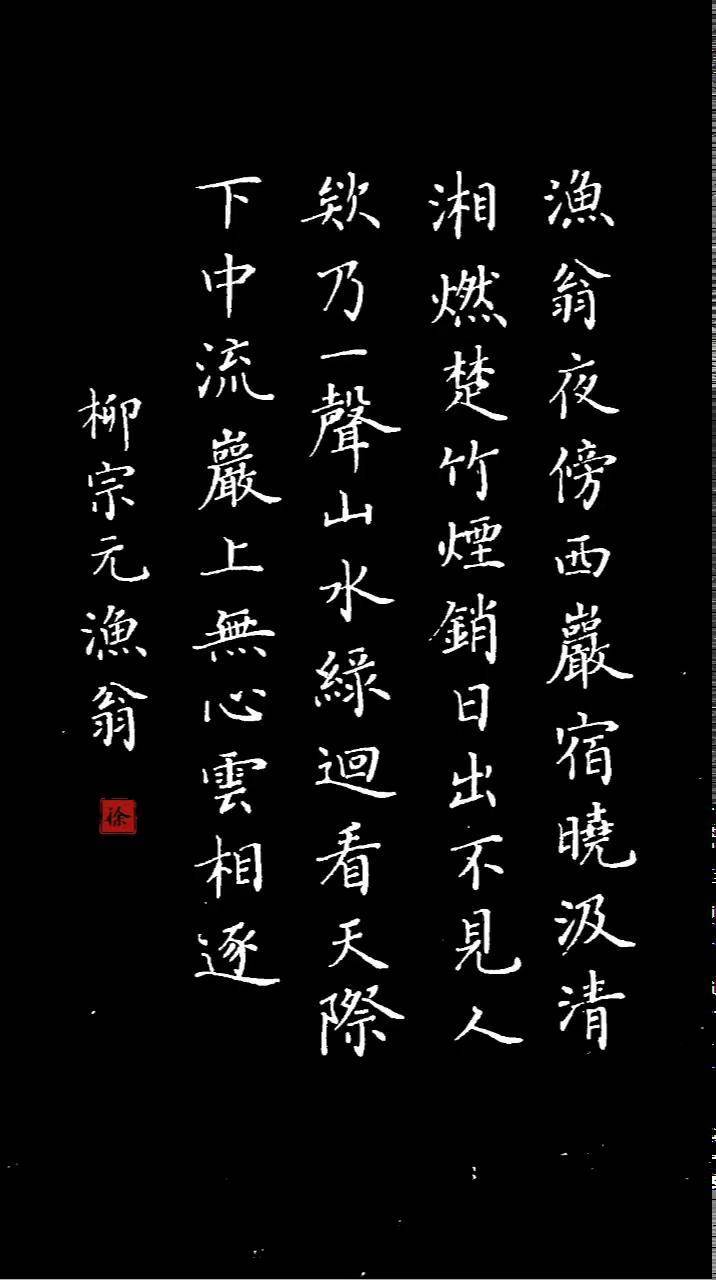 漁翁夜傍西巖宿曉汲清
湘燃楚竹煙銷日出不見人
欸乃一聲山水綠迴看天際
下中流巖上無心雲相逐
柳宗元漁翁
徐